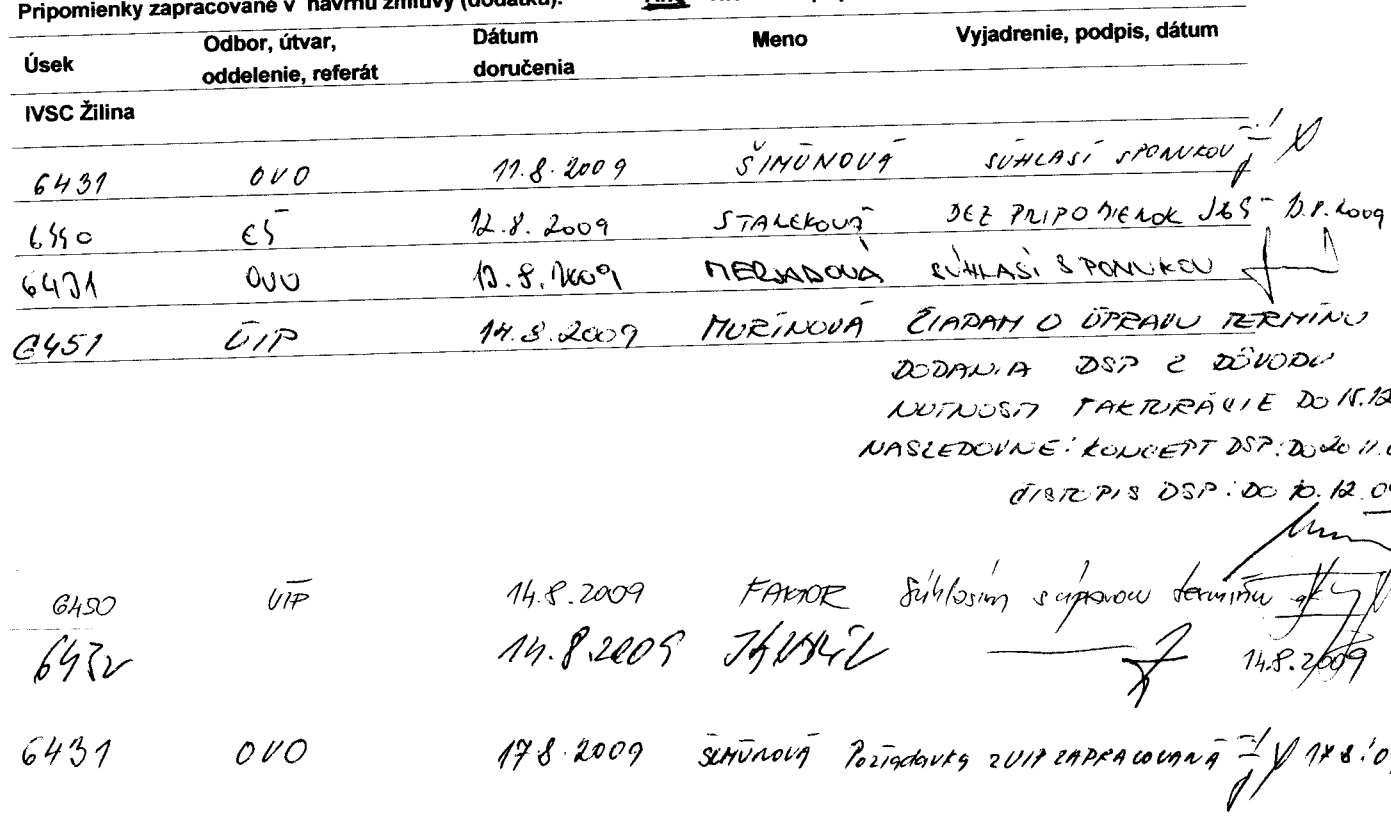 Pripomienky zapracované v návrhu zmluvy (dodatku):
Úsek Odbor, útvar, oddelenie, referát Dátum doručenia Meno Vyjadrenie, podpis, dátum
IVSC Žilina
6431 OVO 11.8.2009 ŠIMÚNOVÁ SÚHLASÍ S PONUKOU
EŠ 12.8.2009 STALEKOVÁ BEZ PRIPOMIENOK 13.8.2009
6431 OVO 13.8.2009 SÚHLASÍ S PONUKOU
6451 ÚIP 14.8.2009 MURÍNOVÁ ŽIADAM O ÚPRAVU TERMÍNU
DODANIA DSP Z DÔVODU
NUTNOSTI FAKTURÁCIE DO 15.12
NASLEDOVNE: KONCEPT DSP: DO 20.11.
ČISTOPIS DSP: DO 10.12.09
6450 ÚIP 14.8.2009 FAKTOR Súhlasím s úpravou termínu
14.8.2009 14.8.2009
6431 OVO 17.8.2009 ŠIMÚNOVÁ Požiadavka z ÚIP ZAPRACOVANÁ 17.8.